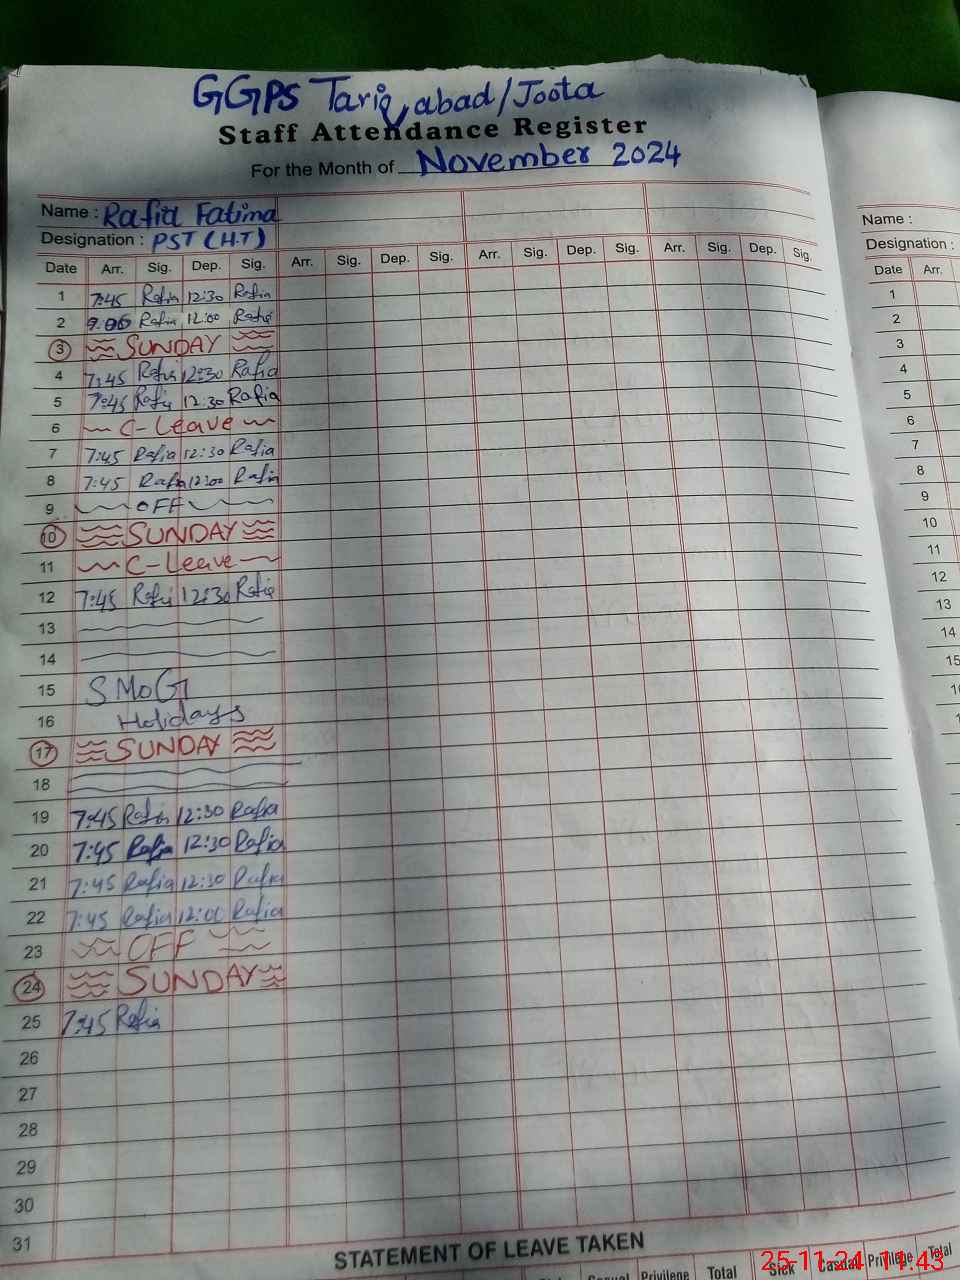 GGPS Tariqabad/Joota
Staff Attendance Register
For the Month of November 2024
Name : Rafia Fatima
Designation : PST (H.T)
Date Arr. Sig. Dep. Sig. Arr. Sig. Dep. Sig. Arr. Sig. Dep. Sig. Arr. Sig. Dep. Sig.
1 7:45 Rafia 12:30 Rafia
2 Rafia 12:00 Rafia
3 SUNDAY
4 7:45 Rafia 12:30 Rafia
5 7:45 Rafia 12:30 Rafia
6 C-Leave
7 7:45 Rafia 12:30 Rafia
8 7:45 Rafia 12:00 Rafia
9 OFF
10 SUNDAY
11 C-Leave
12 7:45 Rafia 12:30 Rafia
13
14
15 SMOG
16 Holidays
17 SUNDAY
18
19 7:45 Rafia 12:30 Rafia
20 7:45 Rafia 12:30 Rafia
21 7:45 Rafia 12:30 Rafia
22 7:45 Rafia 12:00 Rafia
23 OFF
24 SUNDAY
25 7:45 Rafia
26
27
28
29
30
31
STATEMENT OF LEAVE TAKEN
Casual Privilege Total Sick Casual Privilege Total
Name :
Designation :
Date Arr.
1
2
3
4
5
6
7
8
9
10
11
12
13
14
15
25-11-24 11:43